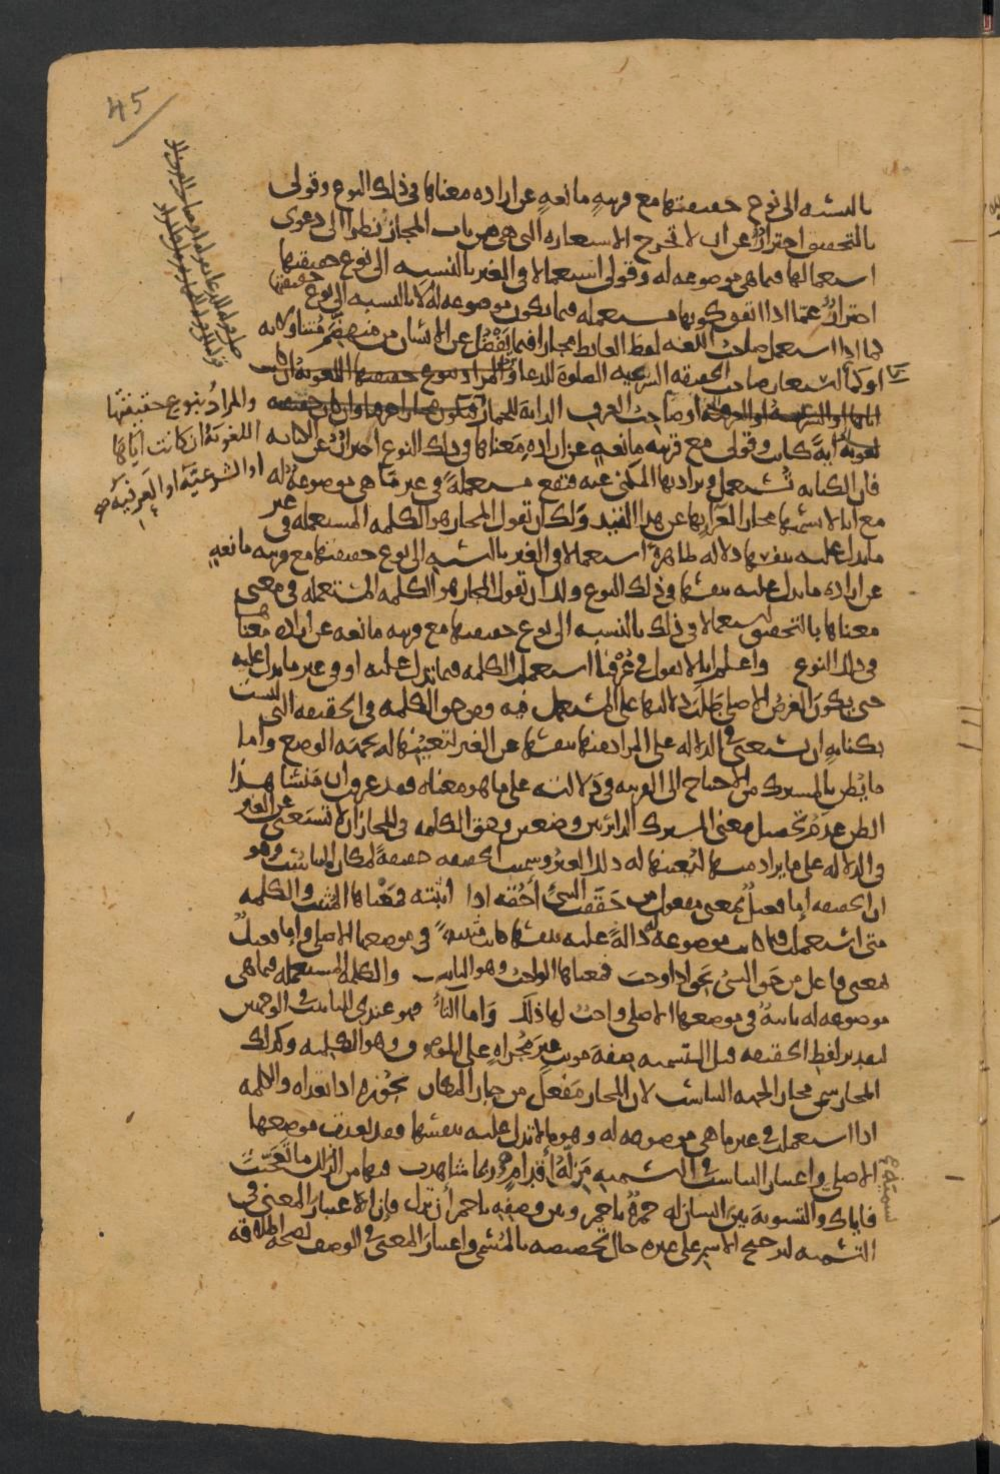 45
بالنسبة الى نوع حقيقتها مع قرينه مانعه عن اراده معناها فى ذلك النوع وقولى
بالتحقيق احتراز عن ان لا تخرج الاستعاره التى هى من باب المجاز نظرا الى دعوى
استعمالها فيما هى موضوعه له وقولى استعمالا فى الغير بالنسبه الى نوع حقيقتها
احتراز عما اذا اتفق كونها مستعمله فيما يكون موضوعه له لا بالنسبه الى نوع حقيقتها
كما اذا استعمل صاحب اللغه لفظ الغايط مجازا فيما يفضل عن الانسان من منهضم متناولاته
او كما استعار صاحب الحقيقه الشرعيه الصلوه للدعا
او صاحب العرف الدابه للحمار
والمراد بنوع حقيقتها
اللغويه ان كانت اياها
او الشرعيه او العرفيه صح
ايه كانت وقولى مع قرينه مانعه عن اراده معناها فى ذلك النوع احتراز عن الكنايه
فان الكنايه تستعمل ويراد بها المكنى عنه فتقع مستعمله فى غير ما هى موضوعه له
مع انا لا نسميها مجازا لعرائها عن هذا القيد ولك ان تقول المجاز هو الكلمه المستعمله فى غير
ما تدل عليه بنفسها دلاله ظاهره استعمالا فى الغير بالنسبه الى نوع حقيقتها مع قرينه مانعه
عن اراده ما تدل عليه بنفسها فى ذلك النوع ولك ان تقول المجاز هو الكلمه المستعمله فى معنى
معناها بالتحقيق استعمالا فى ذلك بالنسبه الى نوع حقيقتها مع قرينه مانعه عن اراده معناها
فى ذلك النوع واعلم انا لا نقول فى عرفنا استعملت الكلمه فيما تدل عليه او فى غير ما تدل عليه
حتى يكون الغرض الاصلى طلب دلالتها على المستعمل فيه ومن حق الكلمه فى الحقيقه التى ليست
بكنايه ان تستغنى فى الدلاله على المراد منها بنفسها عن الغير لتعينها له بجهه الوضع واما
ما يظن بالمشترك من الاحتياج الى القرينه فى دلالته على ما هو معناه فقد عرفت ان منشا هذا
الظن عدم تحصيل معنى المشترك الداير بين وضعين وحق الكلمه فى المجاز ان لا تستغنى عن الغير
فى الدلاله على ما يراد منها لتعينها له ذلك الغير وسميت الحقيقه حقيقة لمكان التناسب وهو
ان الحقيقه اما فعيل بمعنى مفعول من حققت الشئ احقه اذا اثبته فمعناها المثبت والكلمه
متى استعملت فيما كانت موضوعه له دالة عليه بنفسها كانت مثبتة فى موضعها الاصلى واما فعيل
بمعنى فاعل من حق الشى يحق اذا وجب فمعناها الواجب وهو الثابت والكلمه المستعمله فيما هى
موضوعه له ثابتة فى موضعها الاصلى واجب لها ذلك واما التا فهو عندى للتانيث فى الوجهين
لتقدير لفظ الحقيقه قبل التسميه صفة مونث غير مجراه على الموصوف وهو الكلمه وكذلك
المجاز سمى مجازا لجهه التناسب لان المجاز مفعل من جاز المكان يجوزه اذا تعداه والكلمه
اذا استعملت فى غير ما هى موضوعه له وهو ما لا تدل عليه بنفسها فقد تعدت موضعها
الاصلى واعتبار التناسب فى التسميه مزلة اقدام ربما شاهدت فيها من الزلل ما تعجبت
فاياك والتسوية بين انسان له حمرة باحمر وبين وصفه باحمر ان تزل فان اعتبار المعنى فى
التسميه لترجيح الاسم على غيره حال تخصيصه بالمسمى واعتبار المعنى فى الوصف لصحه اطلاقه